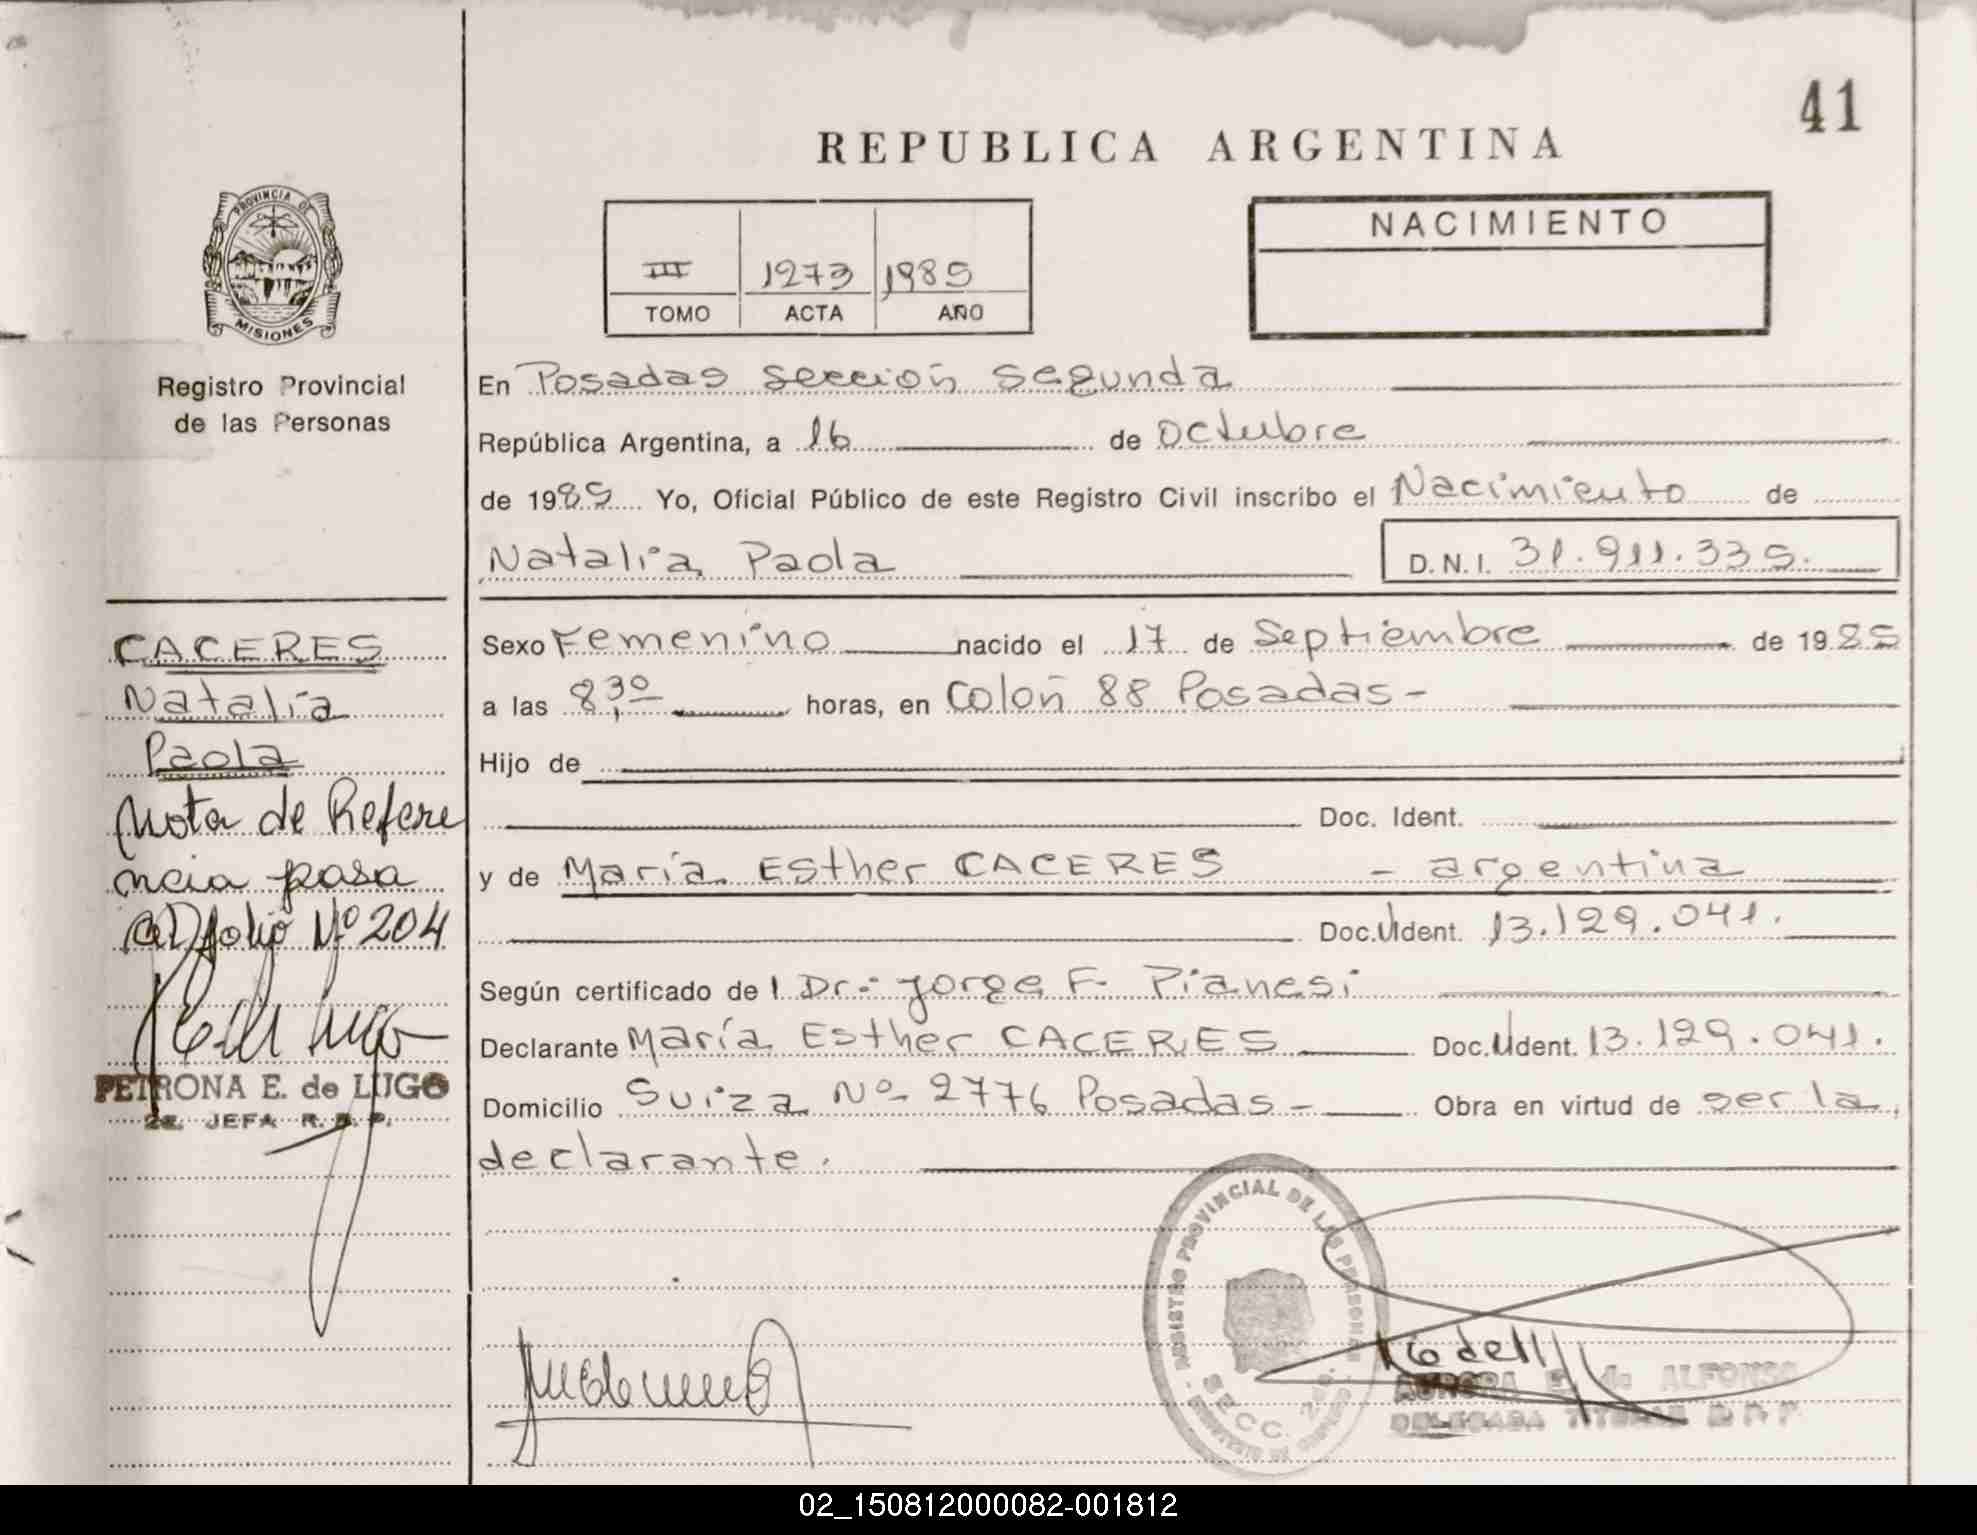 41
REPUBLICA ARGENTINA
PROVINCIA DE
MISIONES
Registro Provincial
de las Personas
III 1273 1985
TOMO ACTA AÑO
NACIMIENTO
En Posadas sección segunda
República Argentina, a 16 de octubre
de 1985 Yo, Oficial Público de este Registro Civil inscribo el Nacimiento de
Natalia Paola D.N.I. 31.911.335.
CACERES
Natalia
Paola
Nota de Refere
ncia pasa
al folio Nº 204
PETRONA E. de LUGO
2a. JEFA R. P. P.
Sexo Femenino nacido el 17 de Septiembre de 1985
a las 8,30 horas, en Colón 88 Posadas-
Hijo de
Doc. Ident.
y de María Esther CACERES - argentina
Doc. Ident. 13.129.041.
Según certificado de l Dr.- Jorge F. Pianesi
Declarante María Esther CACERES Doc. Ident. 13.129.041.
Domicilio Suiza Nº 2776 Posadas- Obra en virtud de ser la
declarante.
REGISTRO PROVINCIAL DE LAS PERSONAS
SECC. 2da.
AURORA E. de ALFONSO
DELEGADA TITULAR
02_150812000082-001812